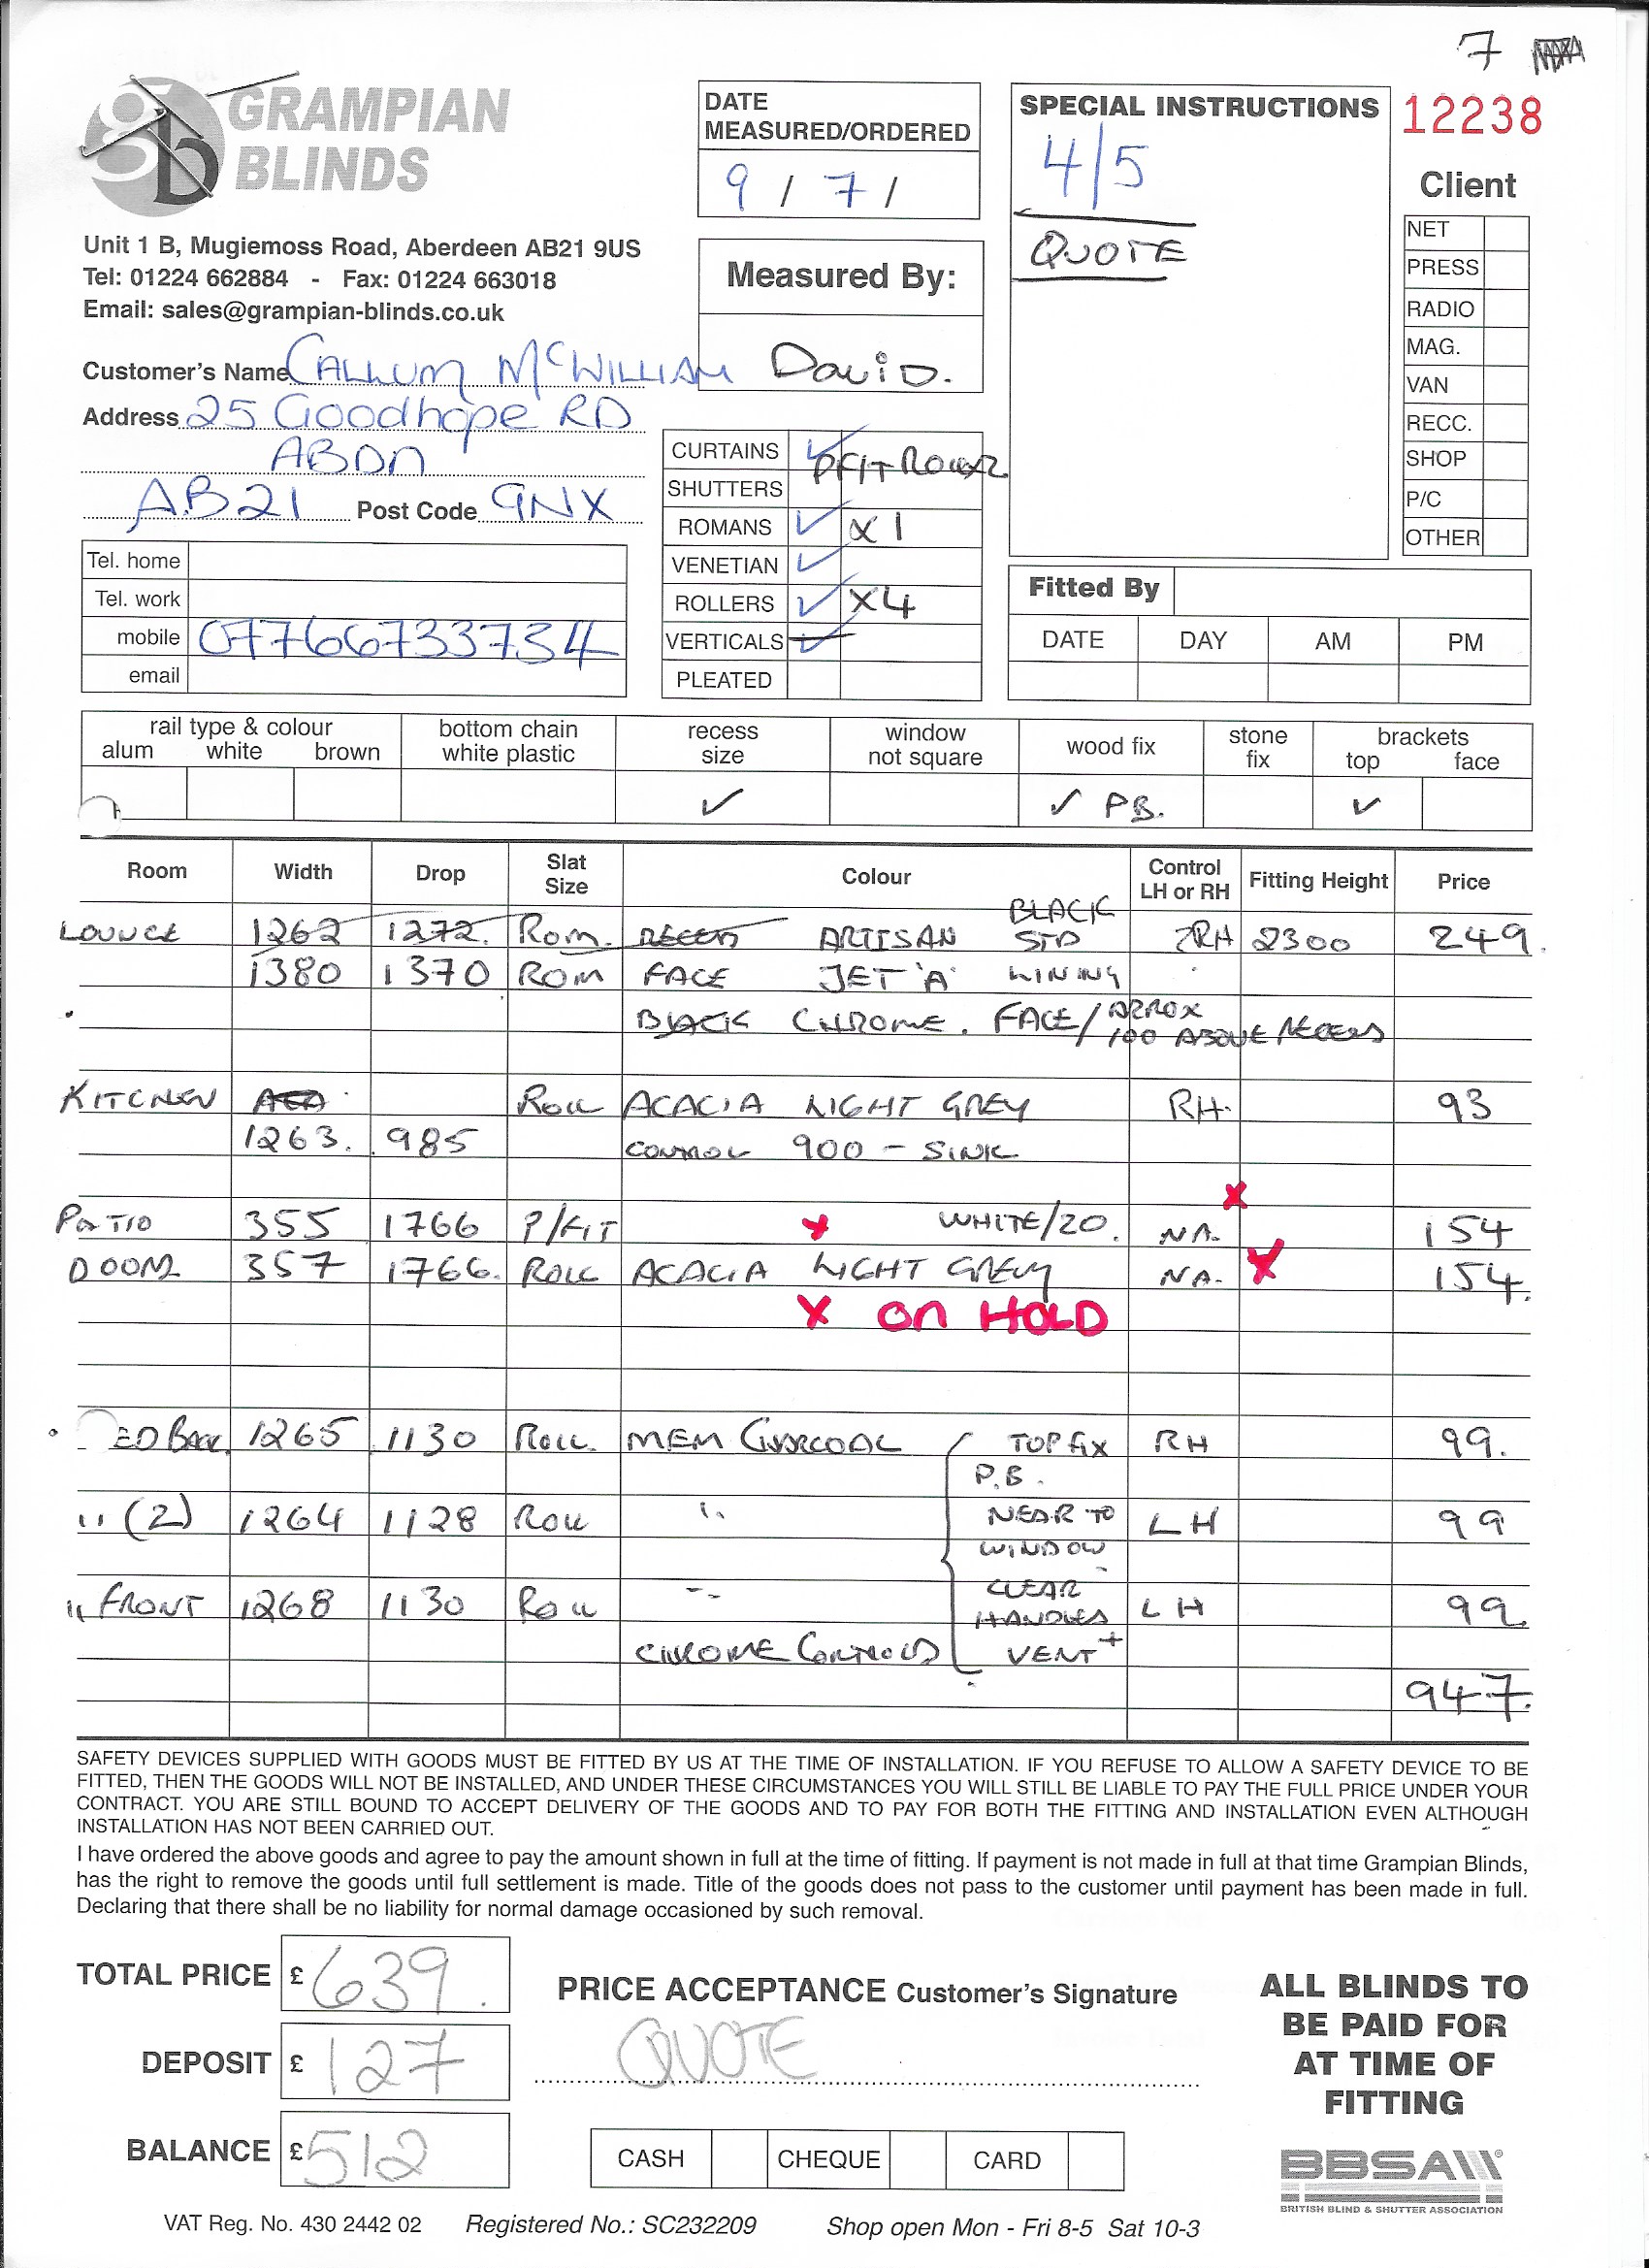 7
GRAMPIAN
BLINDS
gb
Unit 1 B, Mugiemoss Road, Aberdeen AB21 9US
Tel: 01224 662884 - Fax: 01224 663018
Email: sales@grampian-blinds.co.uk
DATE
MEASURED/ORDERED
9 / 7 /
Measured By:
DaviD.
SPECIAL INSTRUCTIONS
4/5
QUOTE
12238
Client
NET
PRESS
RADIO
MAG.
VAN
RECC.
SHOP
P/C
OTHER
Customer's Name CALLUM McWILLIAM
Address 25 Goodhope RD
ABDN
AB21 Post Code 9NX
Tel. home
Tel. work
mobile 07766733734
email
CURTAINS PFIT ROLLER
SHUTTERS
ROMANS ✓ x 1
VENETIAN ✓
ROLLERS ✓ x4
VERTICALS ✓
PLEATED
Fitted By
DATE DAY AM PM
rail type & colour
alum white brown
bottom chain
white plastic
recess
size
window
not square
wood fix
stone
fix
brackets
top face
✓ ✓ PB. ✓
Room Width Drop Slat Size Colour Control LH or RH Fitting Height Price
LOUNGE 1262 1272. Rom. RECESS ARTISAN BLACK STD RH 2300 249.
1380 1370 ROM FACE JET 'A' LINING
BLACK CHROME. FACE/APROX 100 ABOVE RECESS
KITCHEN Roll ACACIA LIGHT GREY RH. 93
1263. 985 CONTROL 900 - SINK
PATIO 355 1766 P/FIT x WHITE/20. NA. x 154
DOOR 357 1766. ROLL ACACIA LIGHT GREY NA. x 154.
X ON HOLD
ED BACK 1265 1130 Roll. MEM CHARCOAL TOP FIX RH 99.
P.B.
" (2) 1264 1128 Roll " NEAR TO LH 99
WINDOW
" FRONT 1268 1130 Roll " CLEAR LH 99
HANDLES
CHROME CONTROLS VENT +
947.
SAFETY DEVICES SUPPLIED WITH GOODS MUST BE FITTED BY US AT THE TIME OF INSTALLATION. IF YOU REFUSE TO ALLOW A SAFETY DEVICE TO BE
FITTED, THEN THE GOODS WILL NOT BE INSTALLED, AND UNDER THESE CIRCUMSTANCES YOU WILL STILL BE LIABLE TO PAY THE FULL PRICE UNDER YOUR
CONTRACT. YOU ARE STILL BOUND TO ACCEPT DELIVERY OF THE GOODS AND TO PAY FOR BOTH THE FITTING AND INSTALLATION EVEN ALTHOUGH
INSTALLATION HAS NOT BEEN CARRIED OUT.
I have ordered the above goods and agree to pay the amount shown in full at the time of fitting. If payment is not made in full at that time Grampian Blinds,
has the right to remove the goods until full settlement is made. Title of the goods does not pass to the customer until payment has been made in full.
Declaring that there shall be no liability for normal damage occasioned by such removal.
TOTAL PRICE £ 639.
DEPOSIT £ 127
BALANCE £ 512
PRICE ACCEPTANCE Customer's Signature
QUOTE
CASH CHEQUE CARD
ALL BLINDS TO
BE PAID FOR
AT TIME OF
FITTING
BBSA
BRITISH BLIND & SHUTTER ASSOCIATION
VAT Reg. No. 430 2442 02 Registered No.: SC232209 Shop open Mon - Fri 8-5 Sat 10-3